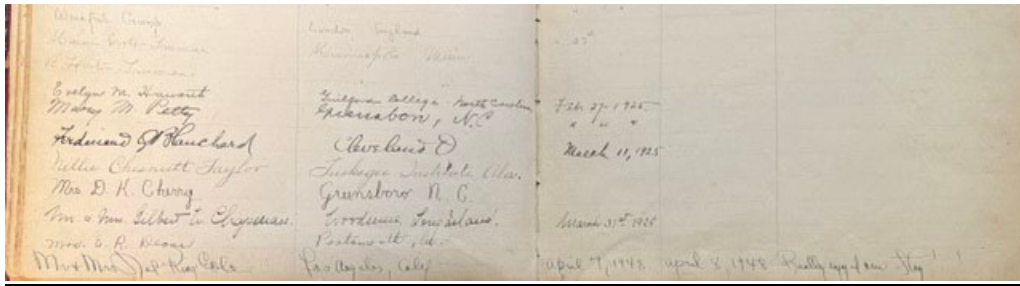 London, England
Minneapolis Minn
Evelyn M. Haworth Guilford College - North Carolina Feb. 27 - 1925
Mary M. Petty Greensboro, N.C. " " "
Ferdinand Q. Blanchard Cleveland O March 11, 1925
Nellie Chesnutt Taylor Tuskegee Institute, Ala.
Mrs. D. K. Cherry Greensboro N. C.
Mr & Mrs. Gilbert W. Chapman. Woodmere, Long Island. March 31st 1925
Mrs. E. R. Portsmouth,
Mr & Mrs Nat King Cole Los Angeles, Calif April 7, 1948 April 8, 1948 Really enjoyed our Stay ! !